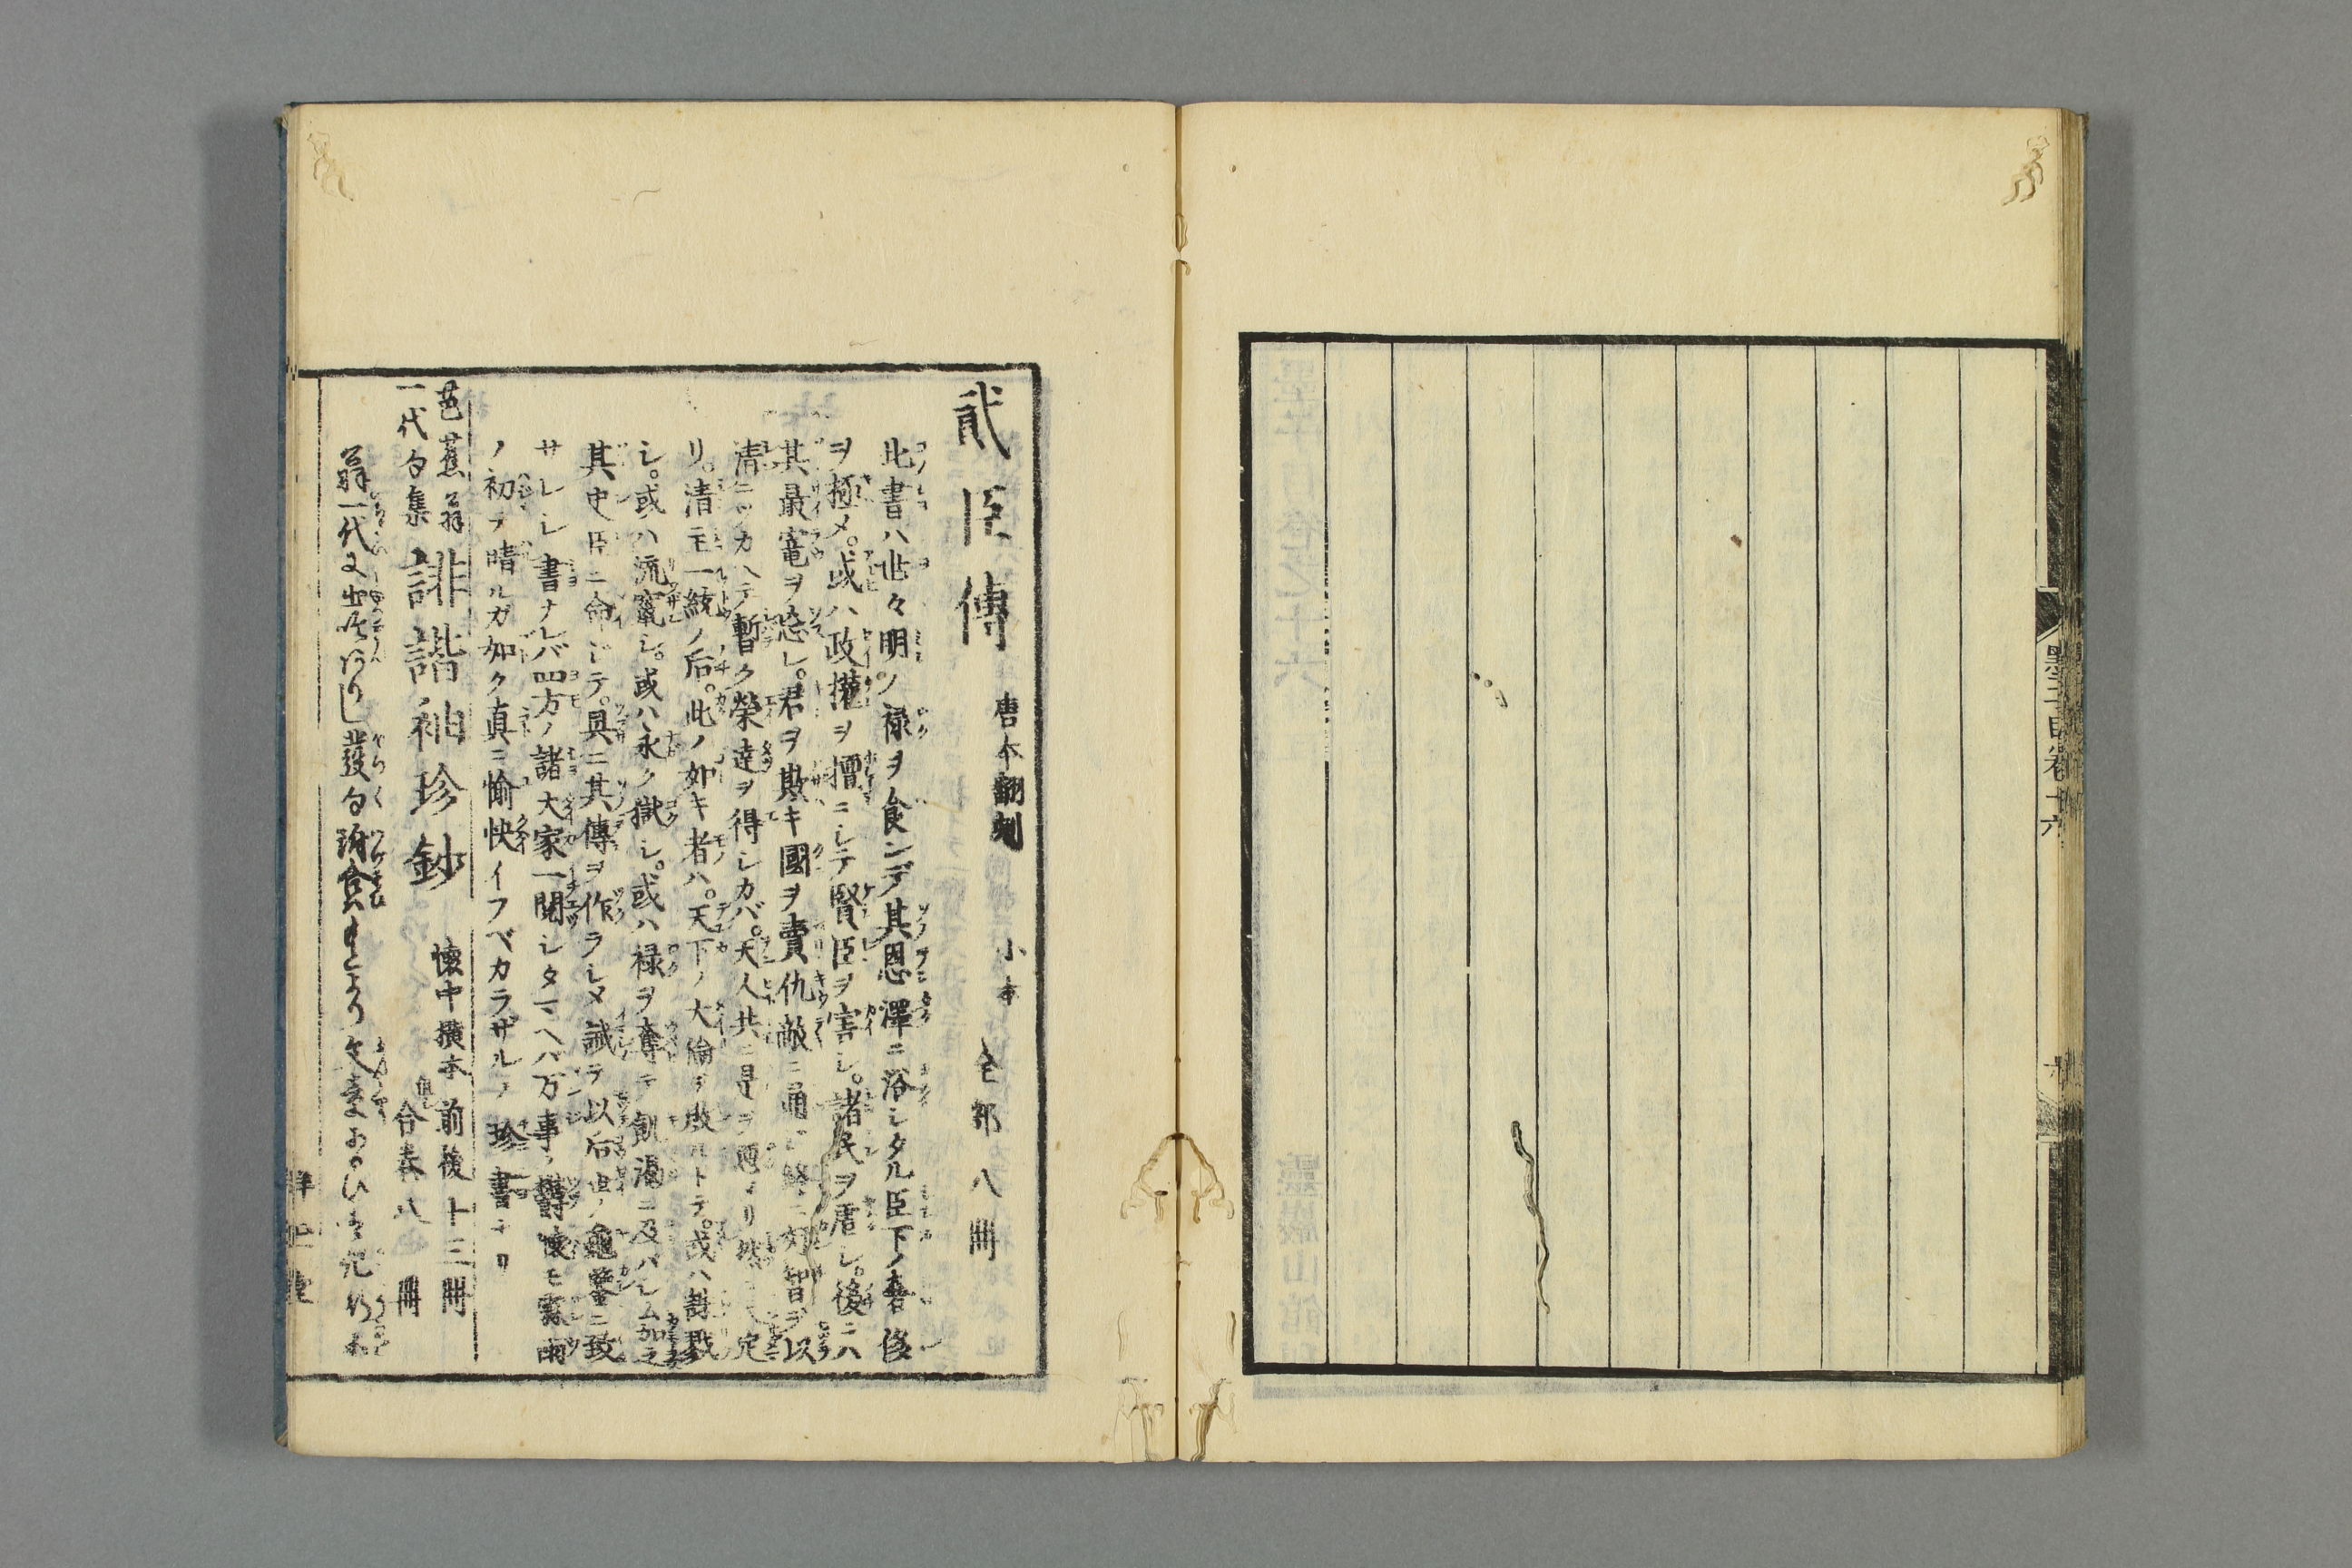 墨子 卷十六
貳臣傳 唐本翻刻 小本 全部八冊
此書ハ世々明ノ禄ヲ食ンデ其恩澤ニ浴シタル臣下ノ奢侈
ヲ極メ。或ハ政權ヲ擅ニシテ賢臣ヲ害シ。諸民ヲ虐シ。後ニハ
其最寵ヲ恐レ。君ヲ欺キ國ヲ賣仇敵ニ通ジ終ニ奸智ヲ以
清ニツカヘテ暫ク榮達ヲ得シカバ。天人共ニ是ヲ惡メリ然 定
リ。清モ一統ノ后。此ノ如キ者ハ。天下ノ大倫ヲ敗ルトテ。或ハ誅戮
シ。或ハ流竄シ。或ハ永ク獄シ。或ハ禄ヲ奪テ飢渇ニ及バシム加之
其史臣ニ命ジテ。具ニ其傳ヲ作ラシメ誡ヲ以后世ノ龜鑒ニ致
サレシ書ナレバ四方ノ諸大家一閲シタマヘバ万事ノ鬱懐モ霖雨
ノ初テ晴ルガ如ク真ニ愉快イフベカラザルノ珍書ナリ
芭蕉翁一代句集 誹諧袖珍鈔 懷中横本 前後十三冊 合本八冊
翁一代に出吟ありし發句附合をはじめ文章